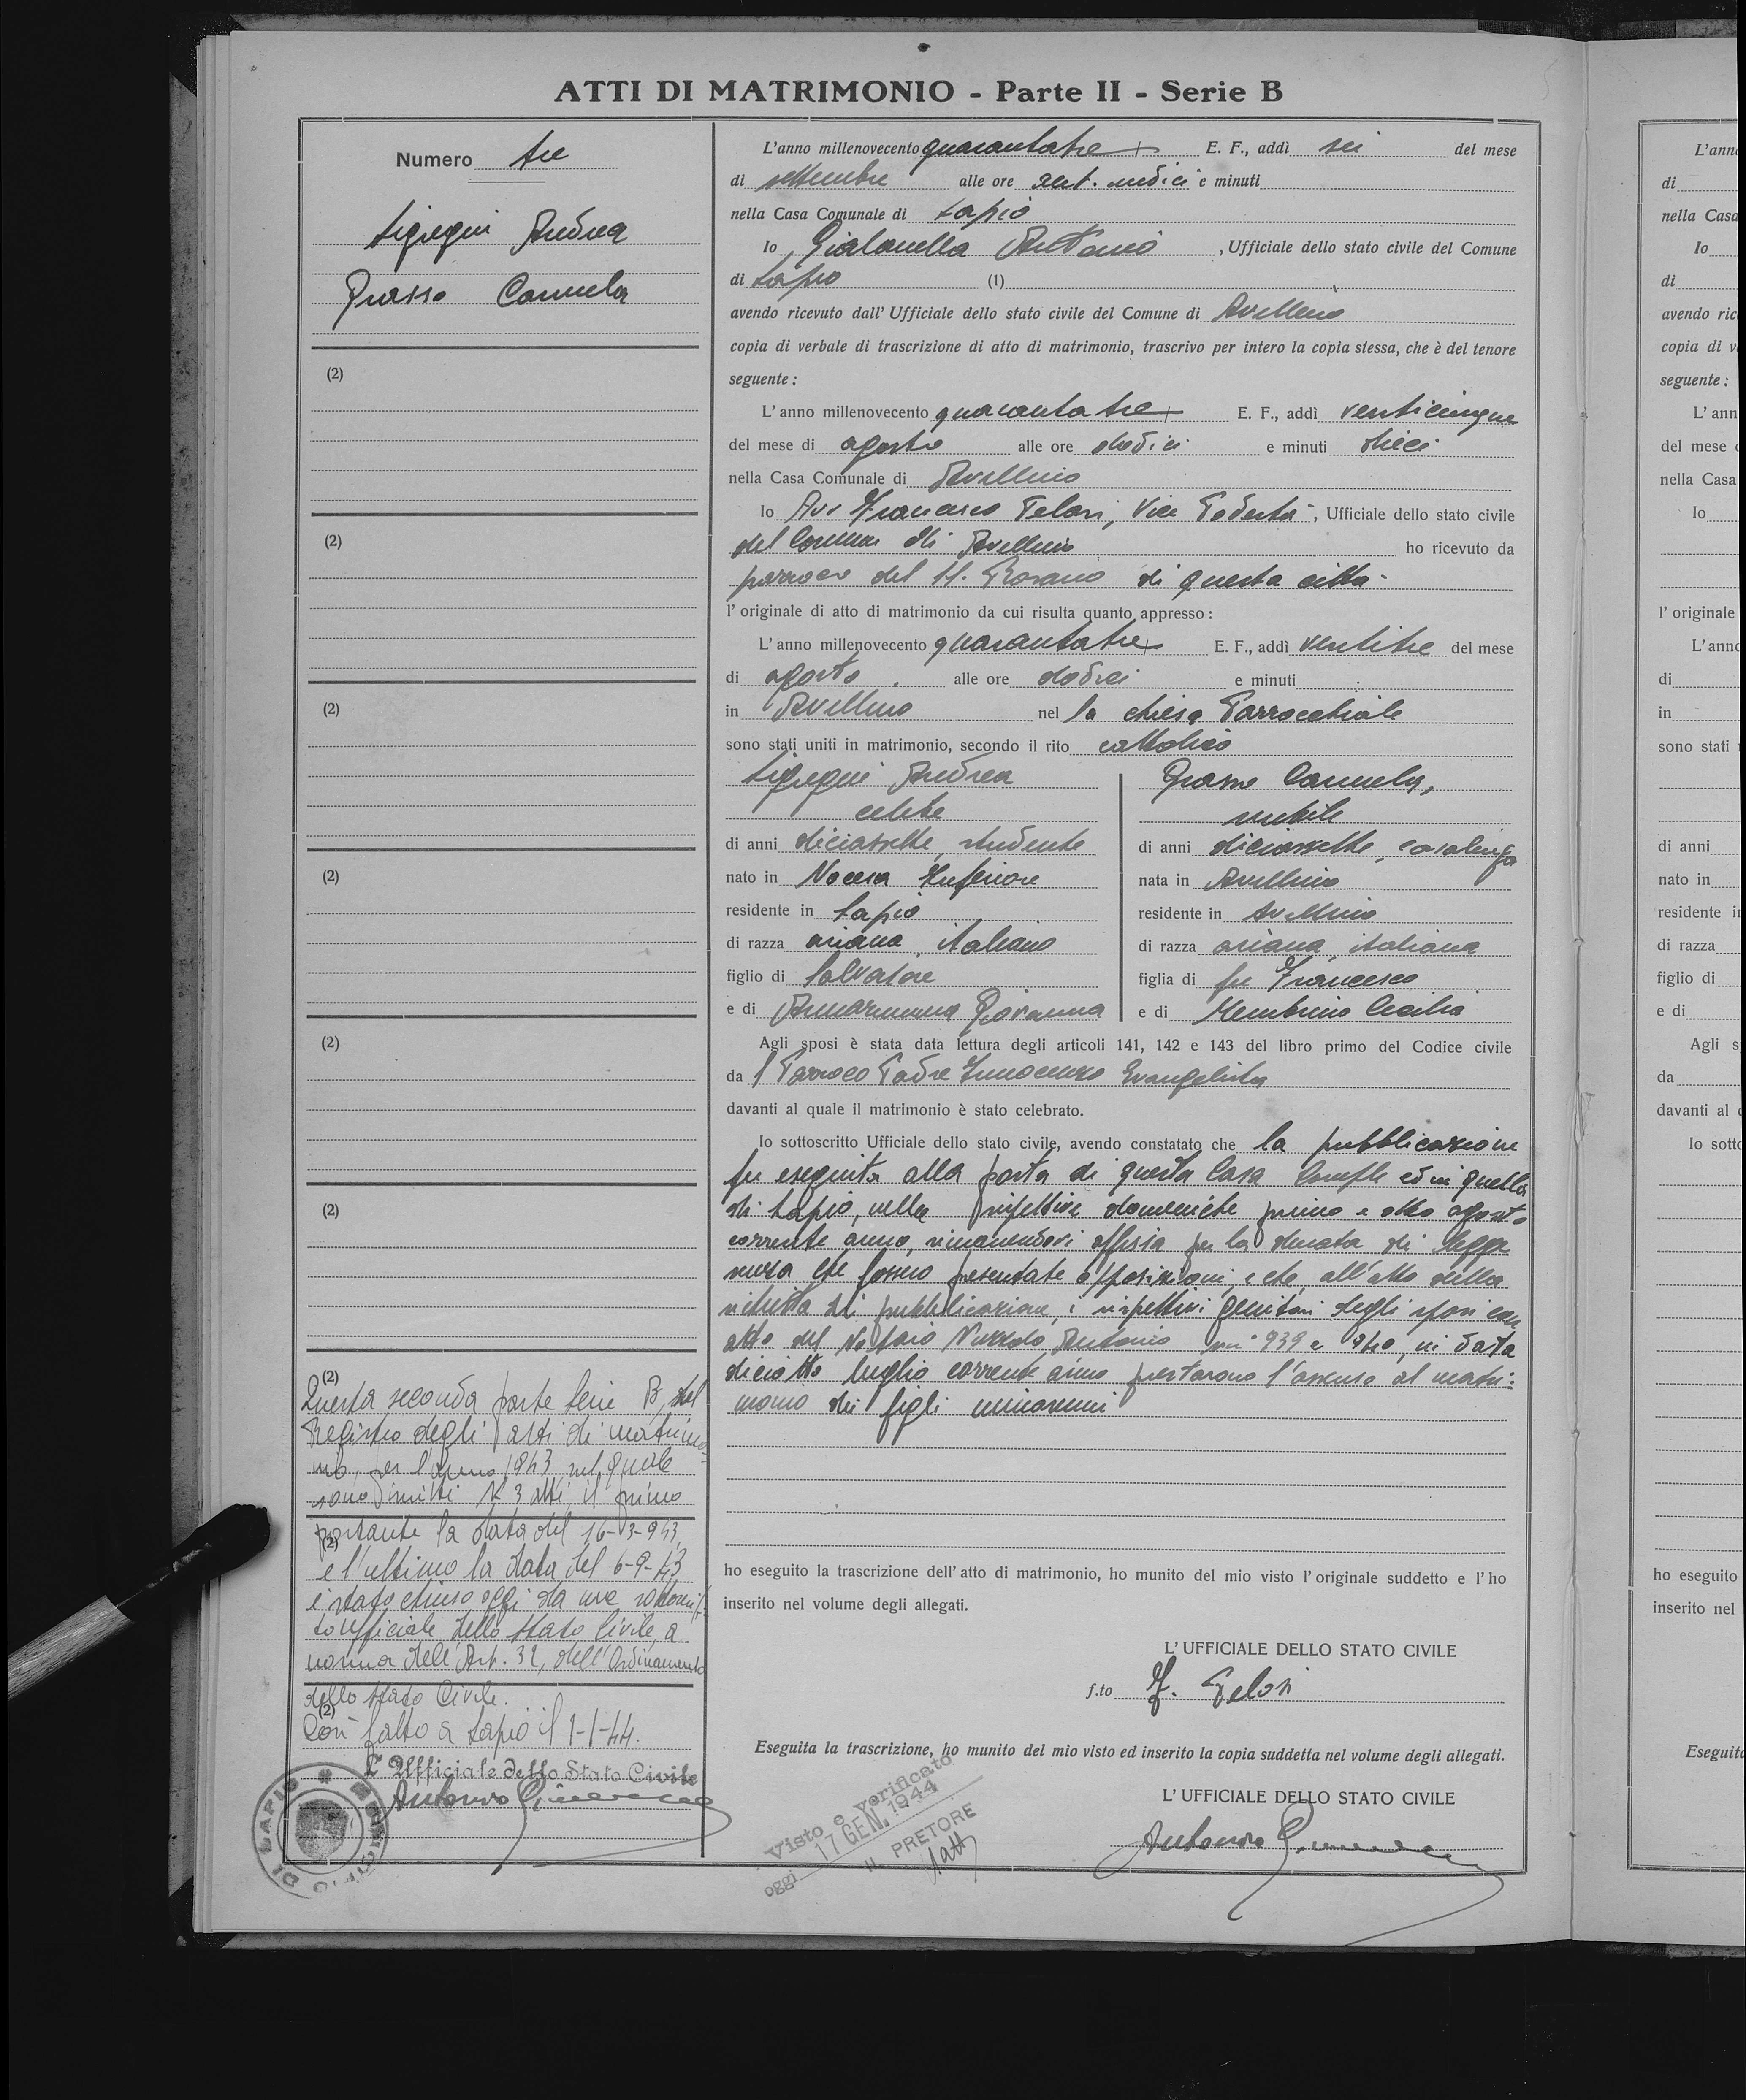 ATTI DI MATRIMONIO - Parte II - Serie B
Numero tre
Andrea
Grasso Carmela
(2)
(2)
(2)
(2)
(2)
(2)
(2)
Questa seconda parte Serie B, del
Registro degli atti di matrimo-
nio, per l'anno 1943 nel quale
sono N. 3 atti, il primo
portante la data del 16-3-943
(2)
e l'ultimo la data del 6-9-43
è stato chiuso oggi da me sottoscrit-
to ufficiale dello Stato Civile, a
norma dell'Art. 32, dell'Ordinamento
dello Stato Civile.
(2)
Così fatto a Lapio il 1-1-44.
L'Ufficiale dello Stato Civile
Antonio
MUNICIPIO DI LAPIO
L'anno millenovecento quarantatre + E. F., addì sei del mese
di settembre alle ore ant. undici e minuti
nella Casa Comunale di Lapio
Io Gialanella Antonio, Ufficiale dello stato civile del Comune
di Lapio (1)
avendo ricevuto dall'Ufficiale dello stato civile del Comune di Avellino
copia di verbale di trascrizione di atto di matrimonio, trascrivo per intero la copia stessa, che è del tenore
seguente:
L'anno millenovecento quarantatre + E. F., addì venticinque
del mese di agosto alle ore dodici e minuti dieci
nella Casa Comunale di Avellino
Io Avv Francesco Gelosi, Vice Podestà, Ufficiale dello stato civile
del Comune di Avellino ho ricevuto da
parroco del SS. Rosario di questa città
l'originale di atto di matrimonio da cui risulta quanto appresso:
L'anno millenovecento quarantatre + E. F., addì ventitre del mese
di agosto alle ore dodici e minuti
in Avellino nella chiesa Parrocchiale
sono stati uniti in matrimonio, secondo il rito cattolico
Andrea
celibe
di anni diciassette, studente
nato in Nocera Inferiore
residente in Lapio
di razza ariana, italiano
figlio di Salvatore
e di Annarumma Giovanna
Grasso Carmela,
nubile
di anni diciassette, casalinga
nata in Avellino
residente in Avellino
di razza ariana, italiana
figlia di fu Francesco
e di Membrino Cecilia
Agli sposi è stata data lettura degli articoli 141, 142 e 143 del libro primo del Codice civile
da l Parroco Padre Innocenzo Evangelista
davanti al quale il matrimonio è stato celebrato.
Io sottoscritto Ufficiale dello stato civile, avendo constatato che la pubblicazione
fu eseguita alla porta di questa Casa Com/le ed in quella
di Lapio, nelle rispettive domeniche primo e otto agosto
corrente anno, rimanendovi affissa per la durata di legge
senza che fossero presentate opposizioni, e che, all'atto della
richiesta di pubblicazione, i rispettivi genitori degli sposi con
atto del Notaio Antonio ni 939 e 940, in data
diciotto luglio corrente anno prestarono l'assenso al matri-
monio dei figli minorenni
ho eseguito la trascrizione dell'atto di matrimonio, ho munito del mio visto l'originale suddetto e l'ho
inserito nel volume degli allegati.
L'UFFICIALE DELLO STATO CIVILE
f.to F. Gelosi
Eseguita la trascrizione, ho munito del mio visto ed inserito la copia suddetta nel volume degli allegati.
L'UFFICIALE DELLO STATO CIVILE
Antonio
Visto e verificato
oggi 17 GEN. 1944
IL PRETORE
L'ann
di
nella Casa
Io
di
avendo ric
copia di v
seguente:
L'ann
del mese
nella Casa
Io
l'originale
L'ann
di
in
sono stati
di anni
nato in
residente i
di razza
figlio di
e di
Agli s
da
davanti al
Io sotto
ho eseguito
inserito nel
Eseguit